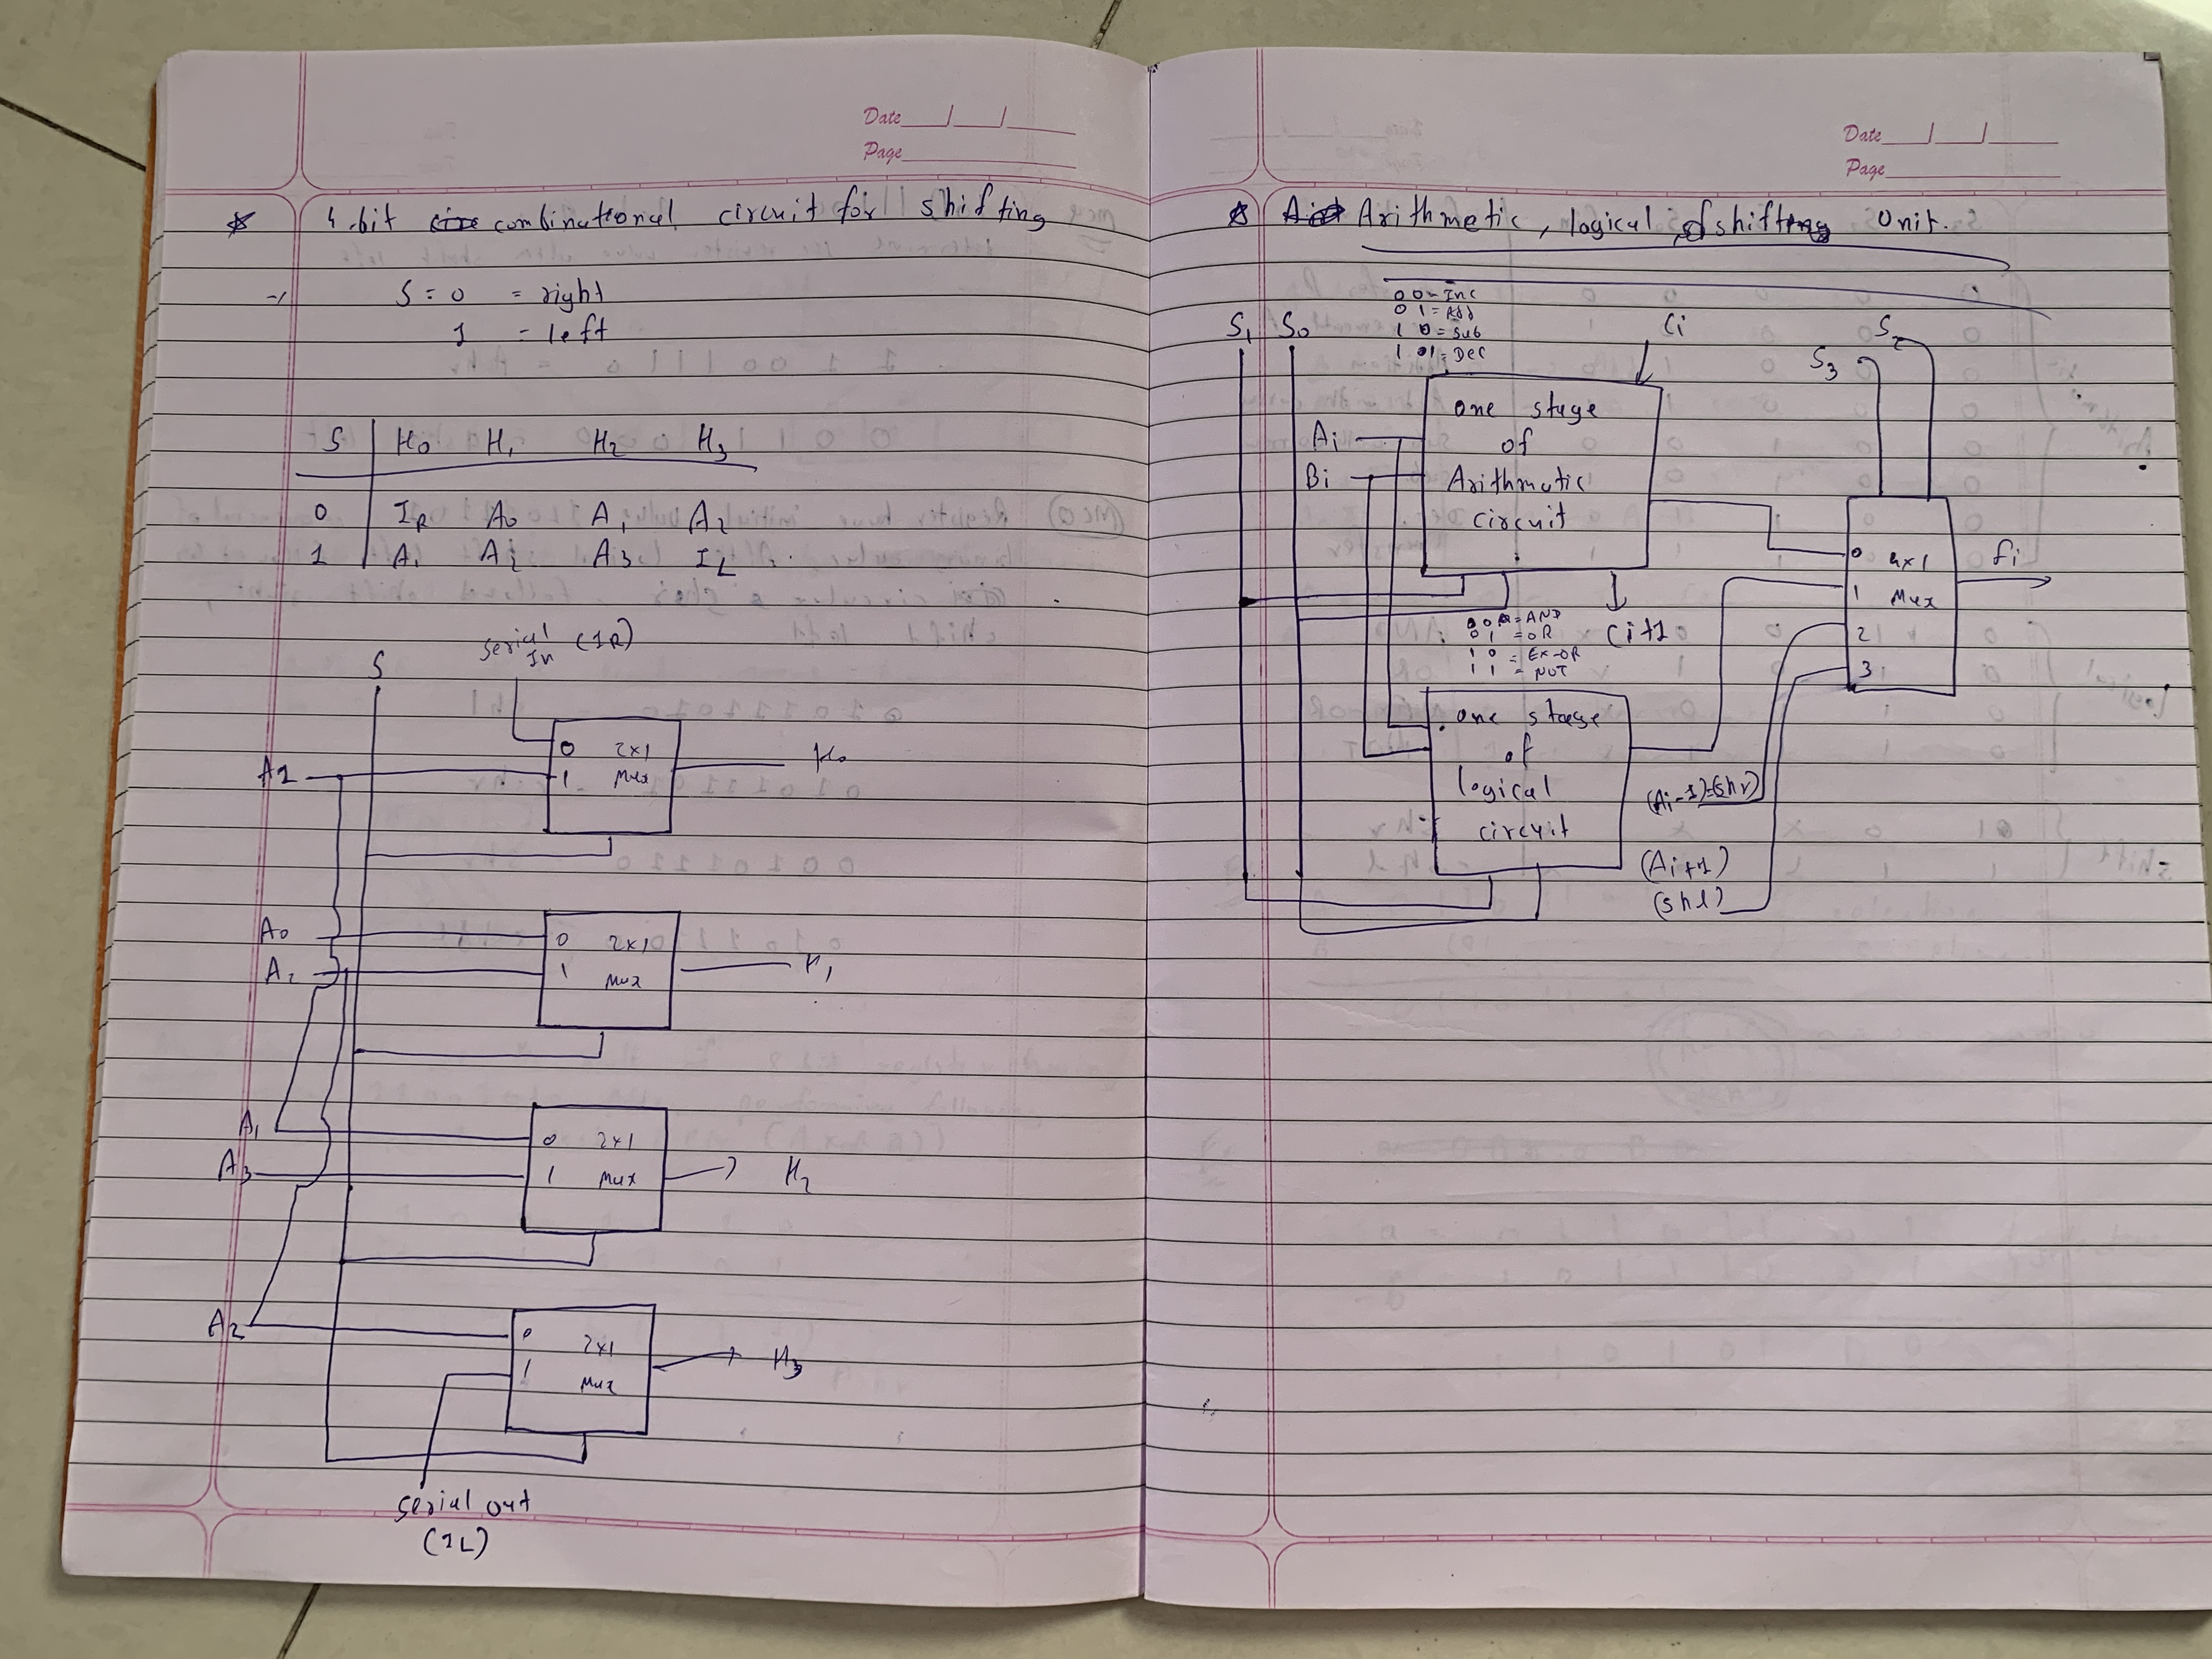 Date
Page
4-bit combinational circuit for shifting
S = 0 = right
1 = left
S H0 H1 H2 H3
0 IR A0 A1 A2
1 A1 A2 A3 IL
serial In (IR)
S
0 2x1
A1 1 Mux H0
A0 0 2x1
A2 1 Mux H1
A1 0 2x1
A3 1 Mux H2
A2 0 2x1
1 Mux H3
serial out
(IL)
Date
Page
Arithmetic, logical, & shifting Unit.
00 = Inc
01 = Add
10 = Sub
11 = Dec
S1 S0 Ci S3 S2
Ai
Bi
one stage
of
Arithmatic
circuit
Ci+1
0 4x1
1 Mux
2
3
fi
00 = AND
01 = OR
10 = EX-OR
11 = NOT
one stage
of
logical
circuit
(Ai-1)=(shr)
(Ai+1)
(shl)